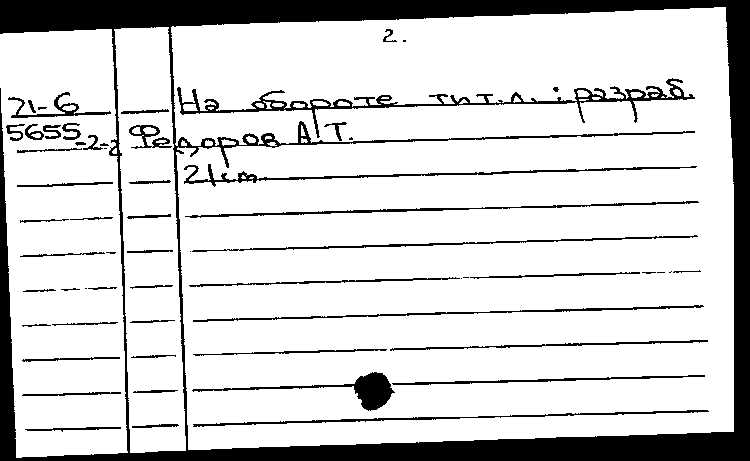 2.
71-6 На обороте тит.л.: разраб.
5655-2-2 Федоров А.Т.
21cm